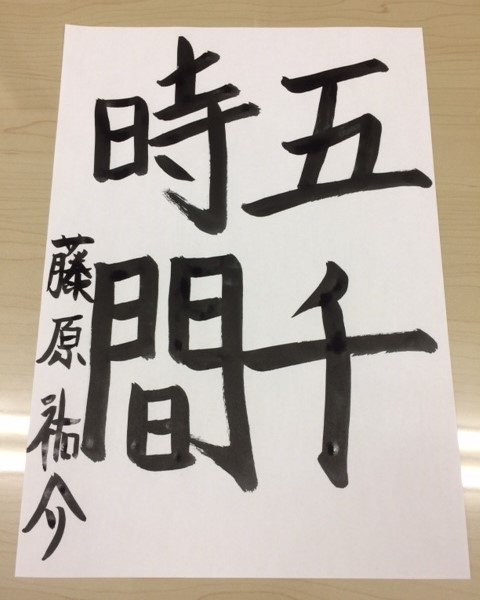 五千
時間
藤原祐介